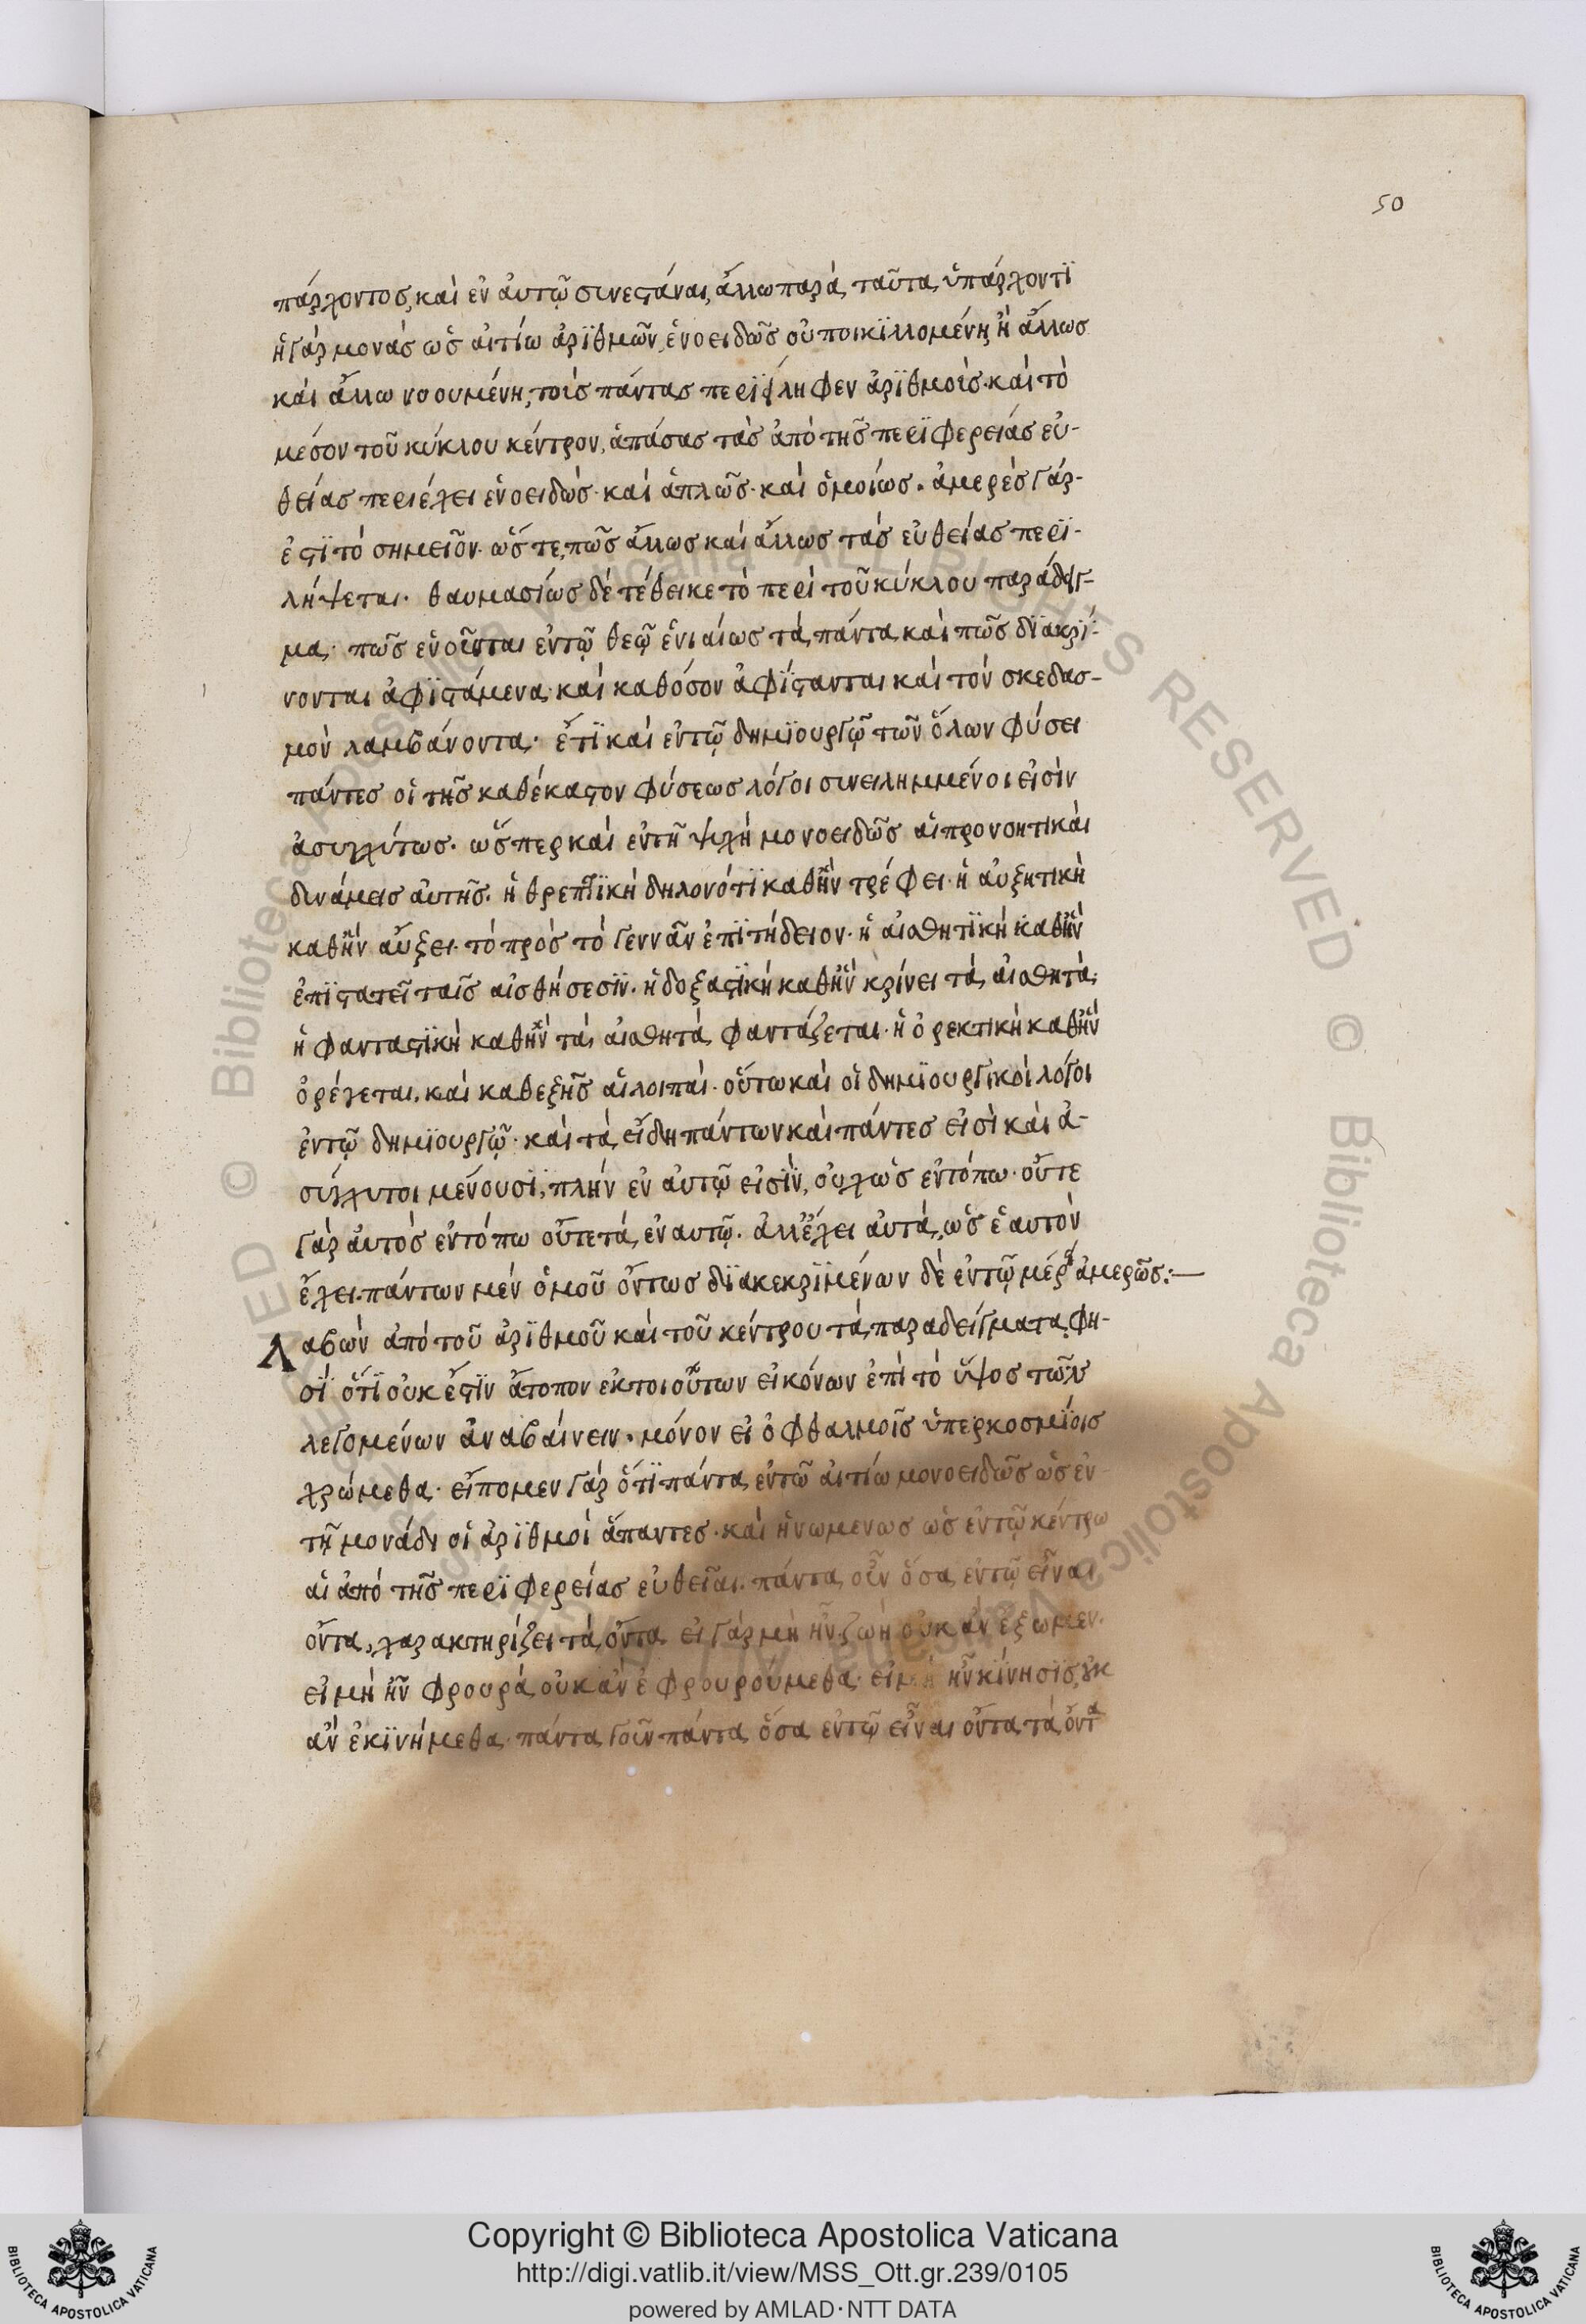 50
πάρχοντος, καὶ ἐν ἀυτῷ συνεστάναι, ἄλλω παρὰ ταῦτα ὑπάρχοντϊ
ἡ γὰρ μονὰς ὡς ἀιτίω ἀρϊθμῶν, ἑνοειδῶς οὐ ποικϊλλομένη ἢ ἄλλως
καὶ ἄλλω νοουμένη, τοὶς πάντας περϊείληφεν ἀρϊθμοὶς· καὶ τὸ
μέσον τοῦ κύκλου κέντρον, ἁπάσας τὰς ἀπὸ τῆς περϊφερείας εὐ-
θείας περιέχει ἑνοειδὼς· καὶ ἁπλῶς· καὶ ὁμοίως. ἀμερὲς γάρ-
ἐστϊ τὸ σημεῖον. ὥστε, πῶς ἄλλως καὶ ἄλλως τὰς εὐθείας περϊ-
λήψεται. θαυμασίως δὲ τέθεικε τὸ περὶ τοῦ κύκλου παράδειγ-
μα· πῶς ἑνοῦνται ἐν τῷ θεῷ ἑνιαίως τὰ πάντα καὶ πῶς δϊακρί-
νονται ἀφϊστάμενα· καὶ καθόσον ἀφίστανται καὶ τὸν σκεδασ-
μὸν λαμβάνοντα· ἔτϊ καὶ ἐν τῷ δημϊουργῷ τῶν ὅλων φύσει
πάντες οἱ τῆς καθέκαστον φύσεως λόγοι συνειλημμένοι εἰσὶν
ἀσυγχύτως. ὥσπερ καὶ ἐν τῆ ψυχῆ μονοειδῶς αἱ προνοητικαὶ
δυνάμεις ἀυτῆς. ἡ θρεπτϊκὴ δηλονότϊ καθἣν τρέφει· ἡ αὐξητικὴ
καθἣν αὔξει· τὸ πρὸς τὸ γεννᾶν ἐπϊτήδειον· ἡ αἰσθητϊκὴ καθἣν
ἐπϊστατεῖ ταῖς αἰσθήσεσϊν. ἡ δοξαστϊκὴ καθἣν κρίνει τὰ αἰσθητὰ·
ἡ φανταστϊκὴ καθἣν τὰ αἰσθητὰ φαντάζεται· ἡ ὀρεκτικὴ καθἣν
ὀρέγεται, καὶ καθεξῆς αἱ λοιπαὶ. οὕτω καὶ οἱ δημϊουργικοὶ λόγοι
ἐν τῷ δημϊουργῷ· καὶ τὰ εἴδη πάντων καὶ πάντες εἰσὶ καὶ ἀ-
σύγχυτοι μένουσϊ, πλὴν ἐν ἀυτῷ εἰσϊν, οὐχ ὡς ἐν τόπω· οὔτε
γὰρ ἀυτὸς ἐν τόπω οὔτε τὰ ἐν αυτῷ. ἀλλἔχει ἀυτὰ, ὡς ἑαυτὸν
ἔχει. πάντων μὲν ὁμοῦ ὄντως δϊακεκρϊμένων δὲ ἐν τῷ μέρει ἀμερῶς:—
Λαβὼν ἀπὸ τοῦ ἀρϊθμοῦ καὶ τοῦ κέντρου τὰ παραδείγματα, φη-
σϊ ὅτϊ οὐκ ἔστϊν ἄτοπον ἐκ τοιούτων εἰκόνων ἐπὶ τὸ ὕψος τῶν
λεγομένων ἀναβαίνειν. μόνον εἰ ὀφθαλμοῖς ὑπερκοσμϊοις
χρώμεθα· εἴπομεν γὰρ ὅτϊ πάντα ἐν τῶ ἀιτίω μονοειδῶς ὡς ἐν
τῆ μονάδι οἱ ἀρϊθμοὶ ἅπαντες· καὶ ἡνωμενως ὡς ἐν τῷ κέντρω
αἱ ἀπὸ τῆς περϊφερείας εὐθεῖαι. πάντα οὖν ὅσα ἐν τῷ εἶναι
ὄντα, χαρακτηρίζει τὰ ὄντα ει γὰρ μὴ ἦν ζωὴ οὐκ ἀν ἐζωμεν·
εἰ μὴ ἦν φρουρὰ οὐκ ἀν ἐφρουρούμεθα· εἰ μὴ ἦν κίνησϊς, οὐκ
ἀν ἐκϊνήμεθα· πάντα γοῦν πάντα ὅσα ἐν τῷ εἶναι ὄντα τὰ ὄντα
Copyright © Biblioteca Apostolica Vaticana
http://digi.vatlib.it/view/MSS_Ott.gr.239/0105
powered by AMLAD·NTT DATA